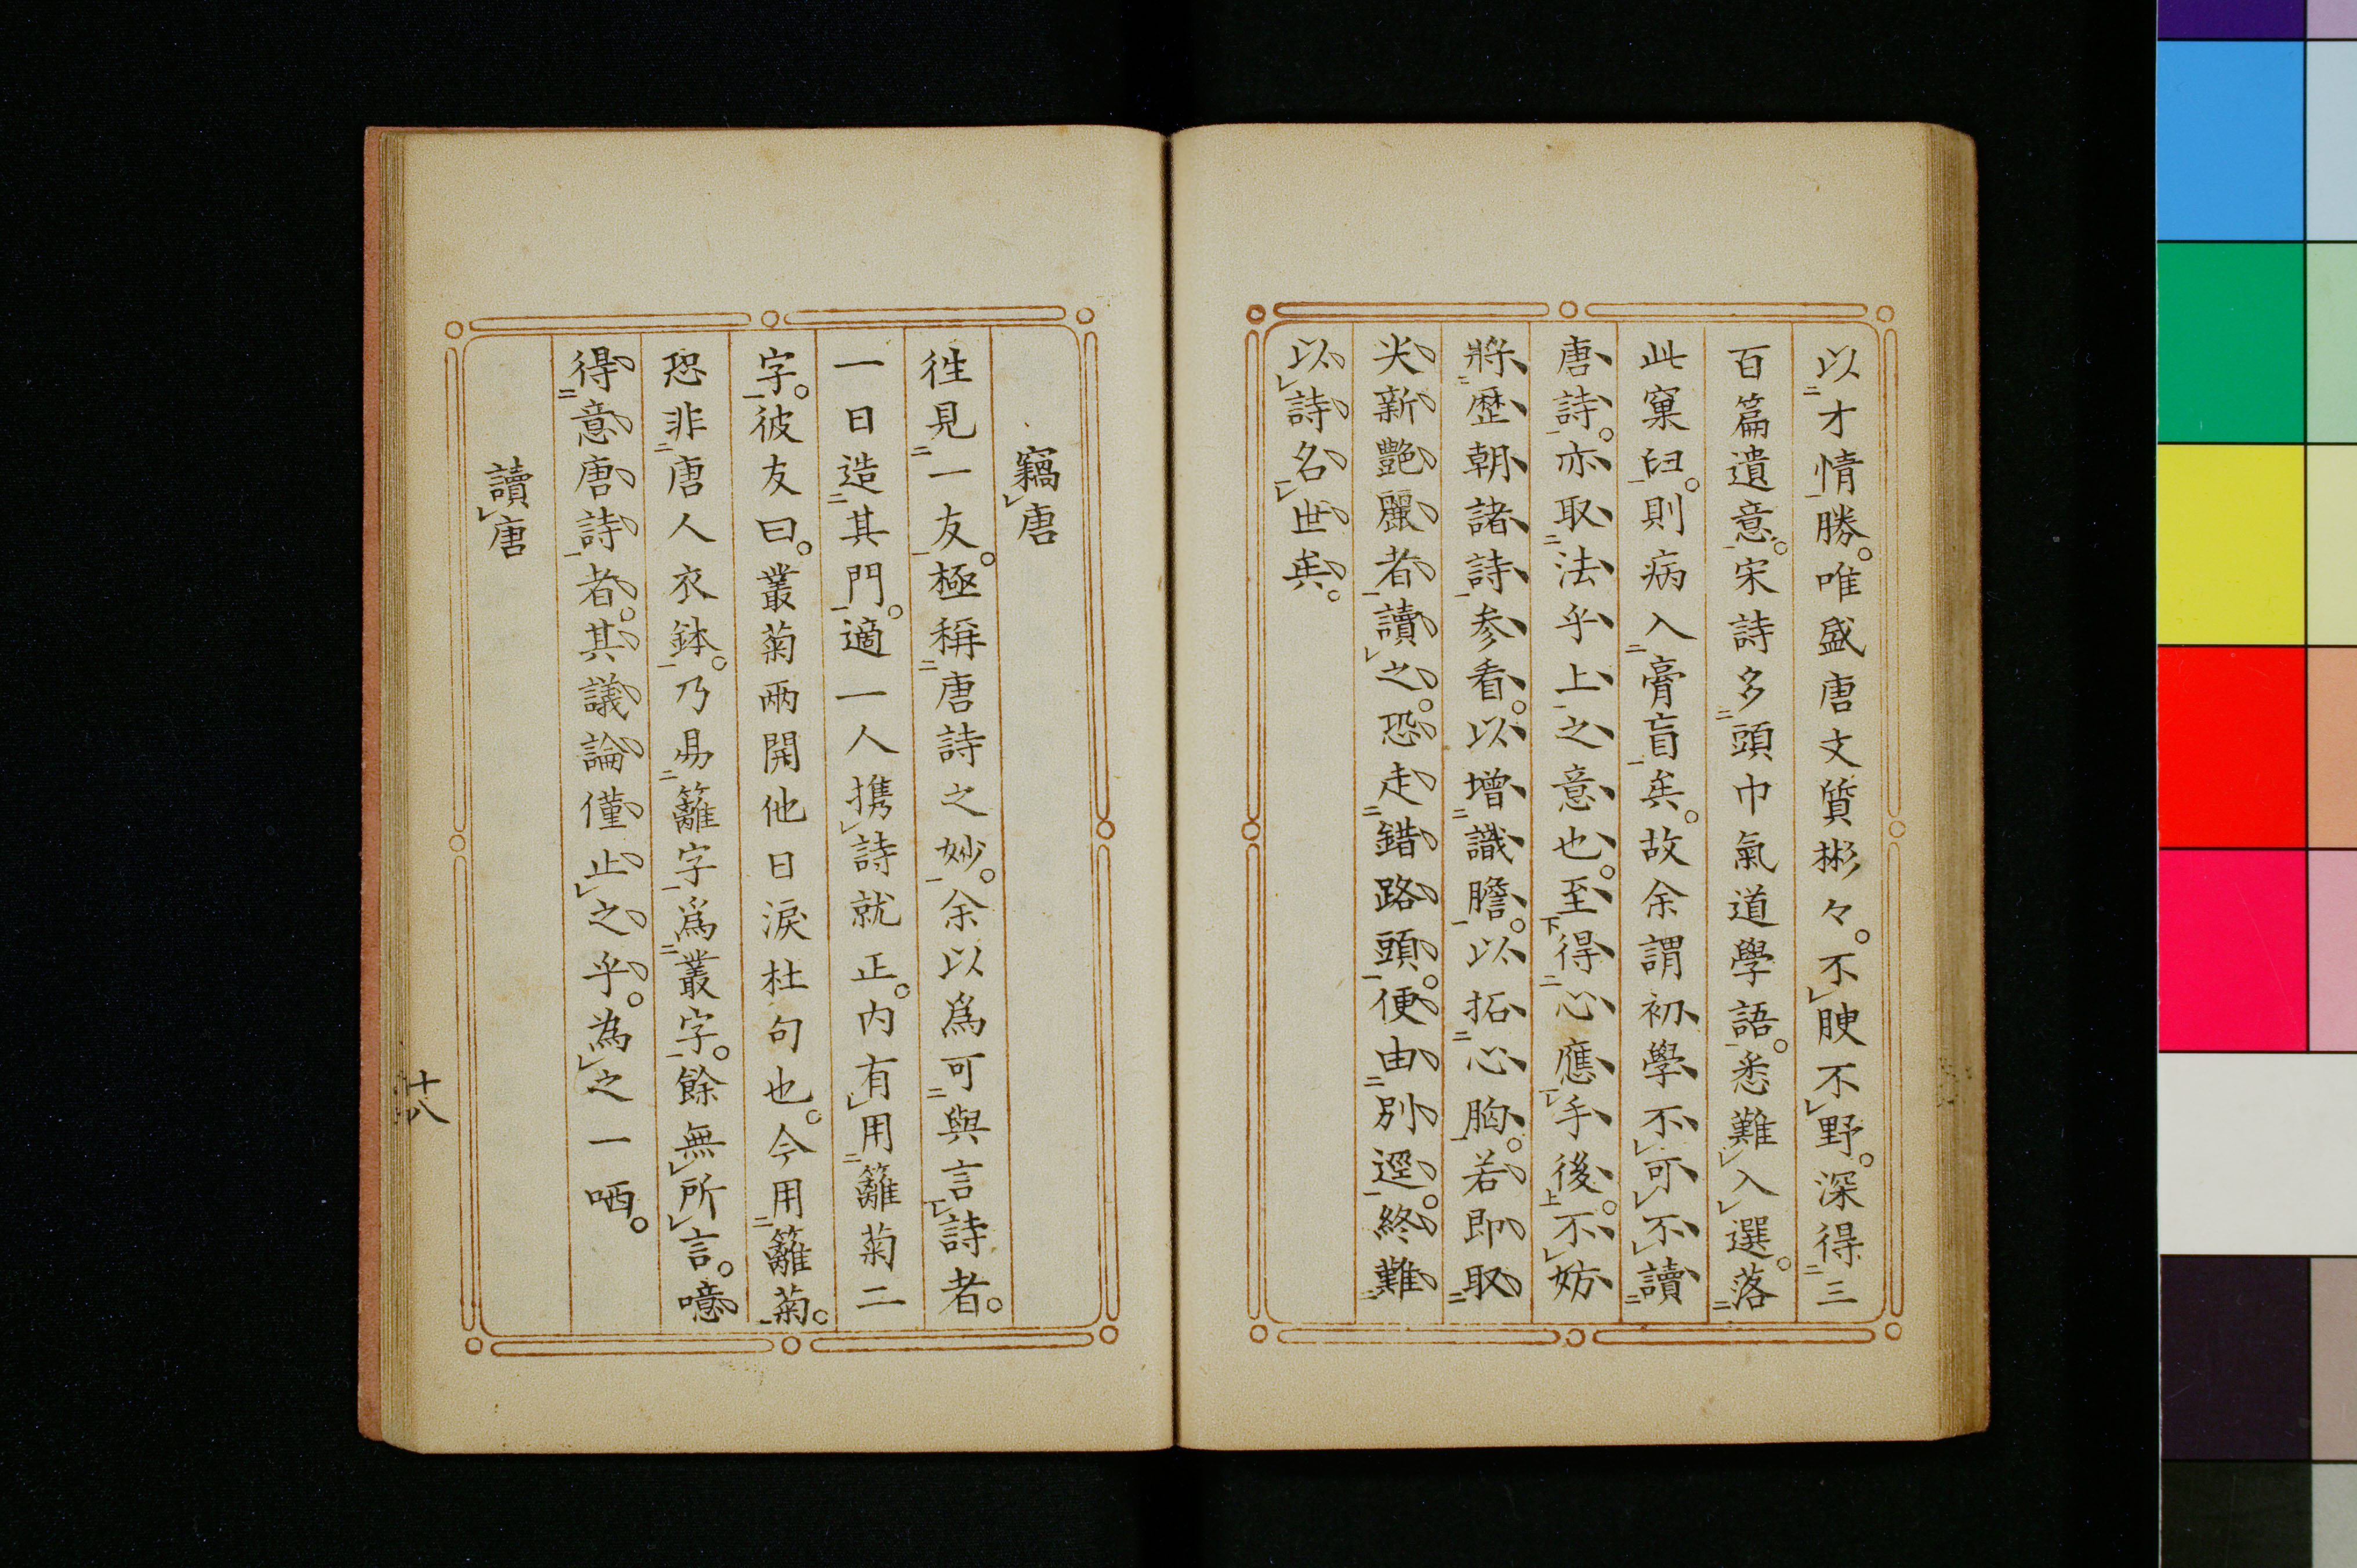 以才情勝。唯盛唐文質彬々。不腴不野。深得三
百篇遺意。宋詩多頭巾氣道學語。悉難入選。落
此窠臼。則病入膏盲矣。故余謂初學不可不讀
唐詩。亦取法乎上之意也。至得心應手後。不妨
將歷朝諸詩參看。以增識膽。以拓心胸。若即取
尖新艷麗者讀之。恐走錯路頭。便由別逕。終難
以詩名世矣。
竊唐
徃見一友。極稱唐詩之妙。余以爲可與言詩者。
一日造其門。適一人携詩就正。內有用籬菊二
字。彼友曰。叢菊兩開他日淚杜句也。今用籬菊。
恐非唐人衣鉢。乃易籬字爲叢字。餘無所言。噫
得意唐詩者。其議論僅止之乎。為之一哂。
讀唐
十八